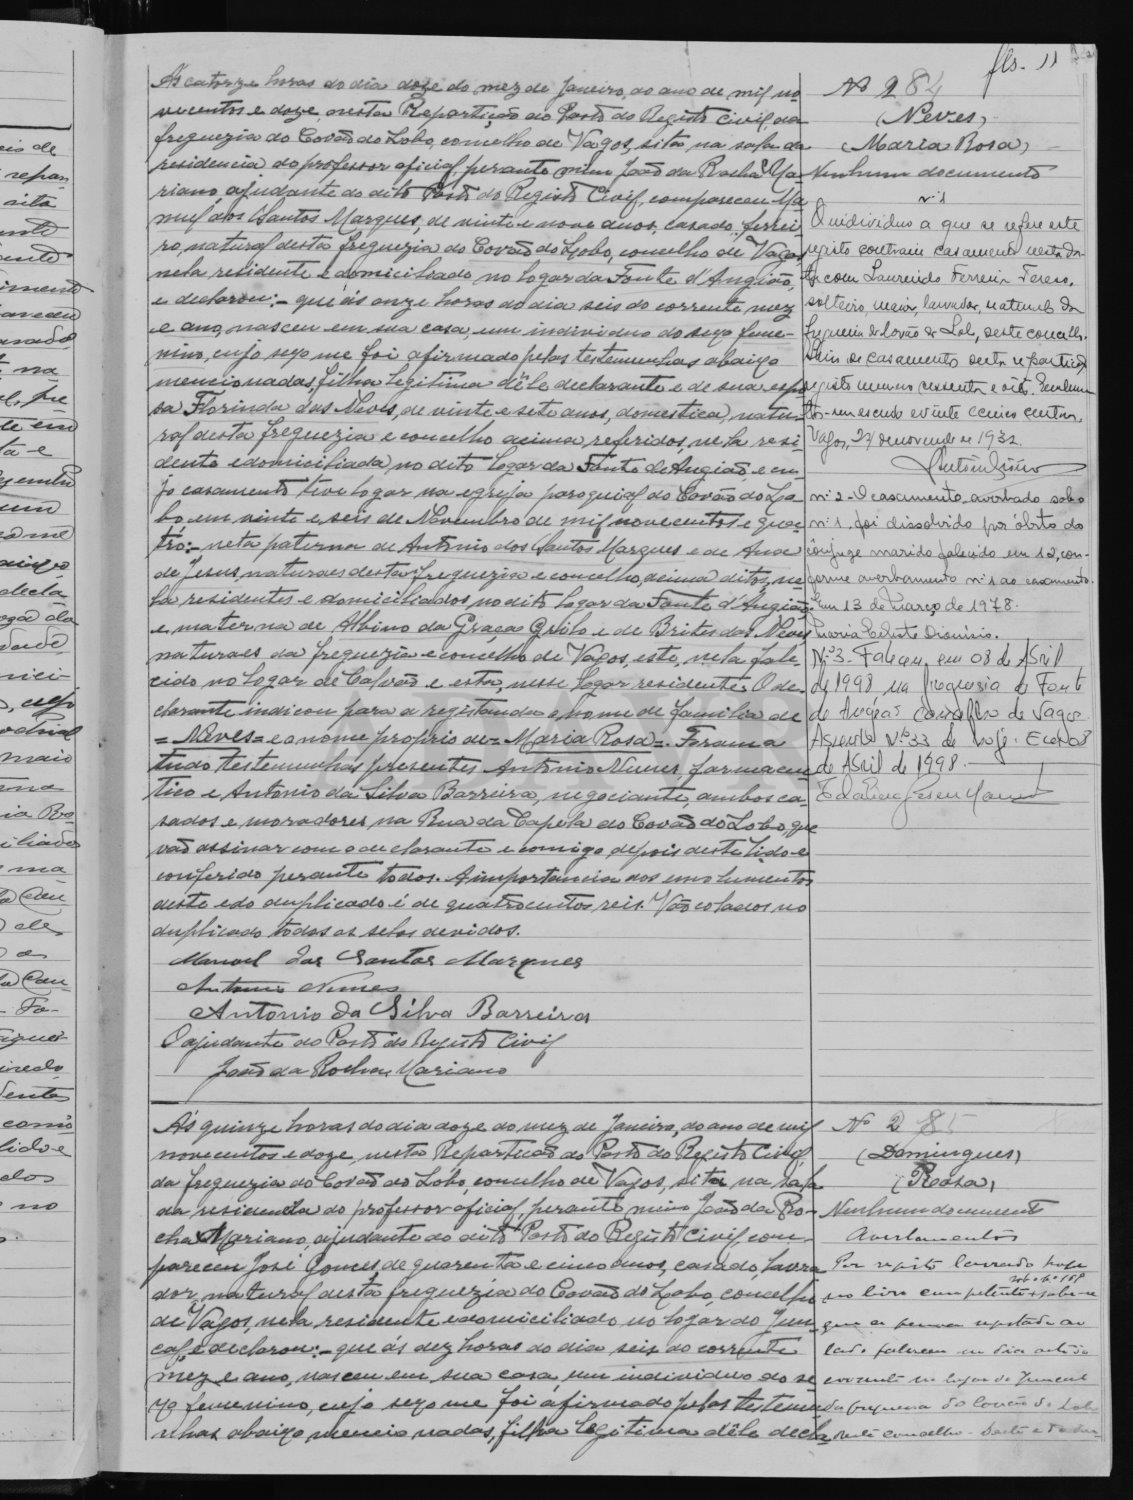 fls. 11
Ás catorze horas do dia doze do mez de Janeiro, do ano de mil no-
vecentos e doze, nesta Repartição do Posto do Registo Civil, da
freguezia do Covão do Lobo, concelho de Vagos, sita na sala da
residencia do professor oficial, perante mim João da Rocha Ma-
riano, ajudante do dito Posto do Registo Civil, compareceu Ma-
nuel dos Santos Marques, de vinte e nove anos, casado, ferrei-
ro, natural desta freguezia do Covão do Lobo, concelho de Vagos,
nela residente e domiciliado no logar da Fonte d'Angião,
e declarou:- que ás onze horas do dia seis do corrente mez
e ano, nasceu em sua casa, um individuo do sexo feme-
nino, cujo sexo me foi afirmado pelas testemunhas abaixo
mencionadas, filha legitima dêle declarante e de sua espo-
sa Florinda das Neves, de vinte e sete anos, domestica, natu-
ral desta freguezia e concelho acima referidos, nela resi-
dente e domiciliada, no dito logar da Fonte de Angião, e cu-
jo casamento teve logar na egreja paroquial do Covão do Lo-
bo, em vinte e seis de Novembro de mil novecentos e qua-
tro:- neta paterna de Antonio dos Santos Marques e de Ana
de Jesus, naturaes desta freguezia e concelho, acima ditos, ne-
la residentes e domiciliados no dito logar da Fonte d'Angião
e materna de Albino da Graça Grilo e de Brites das Neves
naturaes da freguezia e concelho de Vagos, este, nela fale-
cido no logar de Calvão e esta, nesse logar residente. O de-
clarante indicou para a registanda o nome de familia de
= Neves = e o nome proprio de = Maria Rosa =. Foram a
tudo testemunhas presentes Antonio Nunes, farmaceu-
tico e Antonio da Silva Barreira, negociante, ambos ca-
sados e moradores na Rua da Capela do Covão do Lobo, que
vão assinar com o declarante e comigo depois deste lido e
conferido perante todos. A importancia dos emolumentos
deste e do duplicado é de quatrocentos reis. Vão colados no
duplicado todos os selos devidos.
Manuel dos Santos Marques
Antonio Nunes
Antonio da Silva Barreira
O ajudante do Posto do Registo Civil
João da Rocha Mariano
Nº 284
(Neves)
(Maria Rosa)
Nenhum documento
nº 1
O individuo a que se refere este
registo contraiu casamento nesta da-
ta com Laurindo Ferreira
solteiro, maior, lavrador, natural da
freguesia do Covão do Lobo, deste concelho.
de casamento desta repartição
registo numero sessenta e oito.
um escudo e vinte centavos.
Vagos, 27 de novembro de 1932.
nº 2 - O casamento averbado sob o
nº 1. foi dissolvido por óbito do
cônjuge marido falecido em 12, con-
forme averbamento nº 1 ao casamento.
Em 13 de Março de 1978.
Maria Dionisio.
Nº 3 - Faleceu em 08 de Abril
de 1998, na freguesia de Fonte
de Angeão concelho de Vagos
Assento Nº 33 de hoje. Em 08
de Abril de 1998.
Ás quinze horas do dia doze do mez de Janeiro, do ano de mil
novecentos e doze, nesta Repartição do Posto do Registo Civil,
da freguezia do Covão do Lobo, concelho de Vagos, sita na sala
da residencia do professor oficial, perante mim João da Ro-
cha Mariano, ajudante do dito Posto do Registo Civil com-
pareceu José Gomes, de quarenta e cinco anos, casado, lavra-
dor, natural desta freguezia do Covão do Lobo, concelho
de Vagos, nela residente e domiciliado no logar do Jun-
cal, e declarou:- que ás dez horas do dia seis do corrente
mez e ano, nasceu em sua casa, um individuo do se-
xo femenino, cujo sexo me foi afirmado pelas testemu-
nhas abaixo mencionadas, filha legitima dêle decla-
Nº 285
(Domingues)
(Rosa)
Nenhum documento
Averbamentos
Por registo lavrado hoje
no livro competente sabe-se
que a pessoa registada ao
lado faleceu no dia oito do
corrente no logar do Juncal
da freguesia do Covão do Lobo
deste concelho.